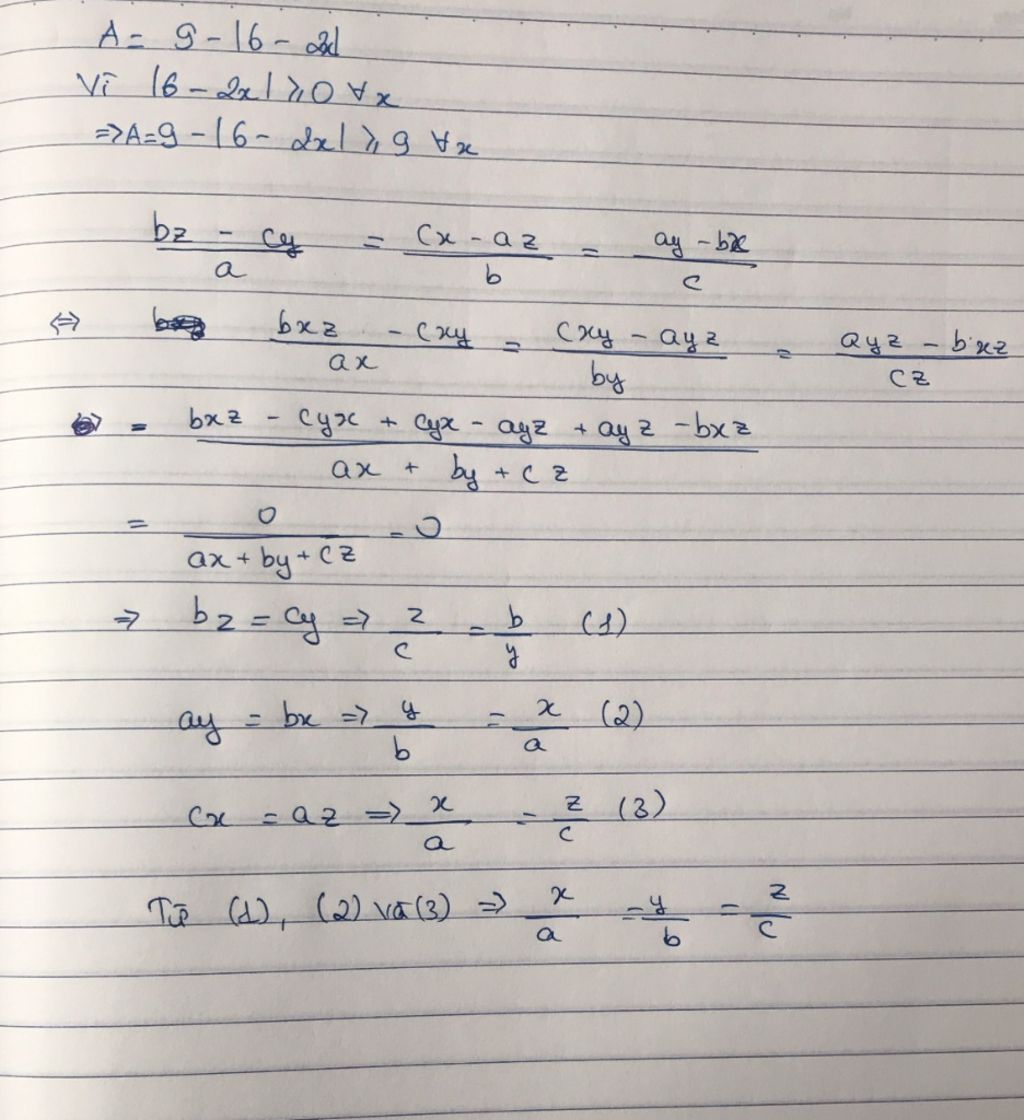 A = 9 - |6 - 2x|
Vì |6 - 2x| ⩾ 0 ∀x
=> A = 9 - |6 - 2x| ⩾ 9 ∀x
(bz - cy)/a = (cx - az)/b = (ay - bx)/c
<=> (bxz - cxy)/(ax) = (cxy - ayz)/(by) = (ayz - bxz)/(cz)
= (bxz - cyx + cyx - ayz + ayz - bxz)/(ax + by + cz)
= 0/(ax + by + cz) = 0
=> bz = cy => z/c = b/y (1)
ay = bx => y/b = x/a (2)
cx = az => x/a = z/c (3)
Từ (1), (2) và (3) => x/a = y/b = z/c